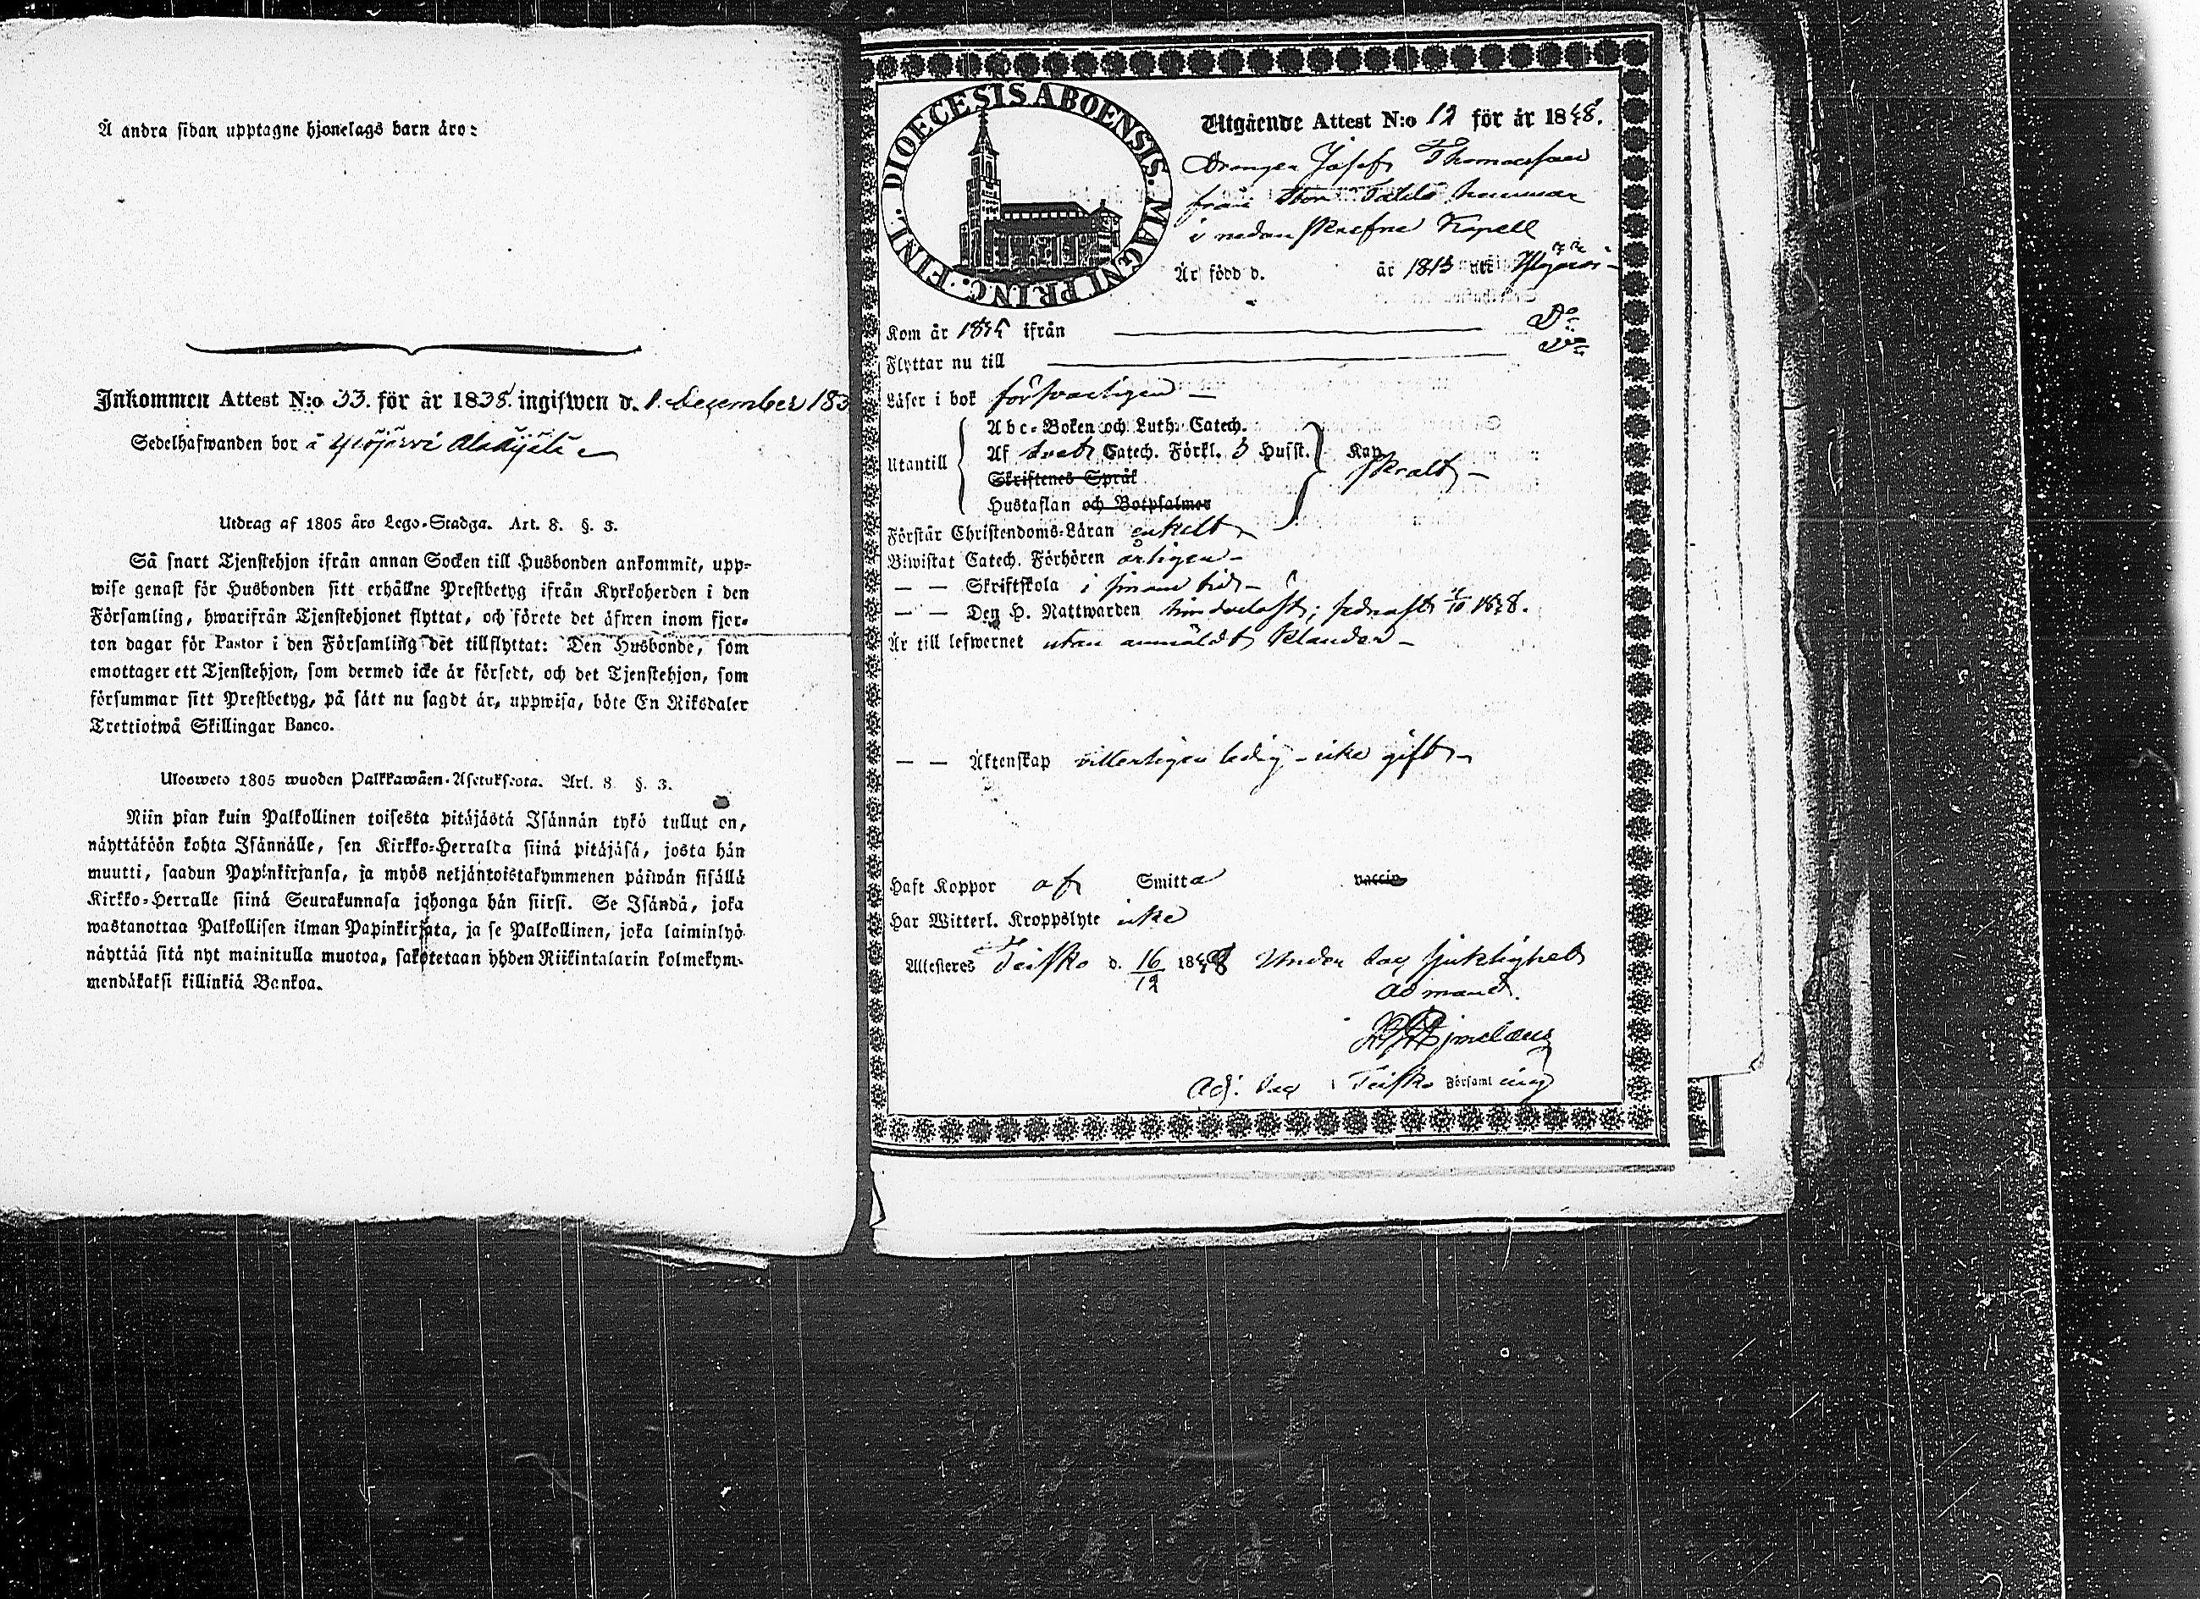 Å andra sidan upptagne hjonelags barn äro:
Inkommen Attest N:o 33. för år 1838. ingifwen d. 1. December 183
Sedelhafwanden bor å Ylöjärvi
Utdrag af 1805 åro Lego-Stadga. Art. 8. §. 3.
Så snart Tjenstehjon ifrån annan Socken till Husbonden ankommit, upp-
wise genast för Husbonden sitt erhållne Prestbetyg ifrån Kyrkoherden i den
Församling, hwarifrån Tjenstehjonet flyttat, och förete det äfwen inom fjor-
ton dagar för Pastor i den Församling det tillflyttat: Den Husbonde, som
emottager ett Tjenstehjon, som dermed icke är försedt, och det Tjenstehjon, som
försummar sitt Prestbetyg, på sätt nu sagdt är, uppwisa, böte En Riksdaler
Trettiotwå Skillingar Banco.
Ulosweto 1805 wuoden Palkkawäen-Asetuksesta. Art. 8 §. 3.
Niin pian kuin Palkollinen toisesta pitäjästä Isännän tykö tullut on,
näyttäköön kohta Isännälle, sen Kirkko-Herralta siinä pitäjäsä, josta hän
muutti, saadun Papinkirjansa, ja myös neljäntoistakymmenen päiwän sisällä
Kirkko-Herralle siinä Seurakunnasa johonga hän siirsi. Se Isändä, joka
wastanottaa Palkollisen ilman Papinkirjata, ja se Palkollinen, joka laiminlyö
näyttää sitä nyt mainitulla muotoa, sakotetaan yhden Riikintalarin kolmekym-
mendäkaksi killinkiä Bankoa.
DIOECESIS ABOENSIS. MAGNI PRINC. FINL.
Utgående Attest N:o 12 för år 1838.
Drengen Josef Thomasson
från Stor Hemman
i nedanskrefne Kapell
År född d. år 1813 uti Ylöjärvi
Kom år 1835 ifrån Do
Flyttar nu till Do
Läser i bok försvarligen
Utantill
Abc-Boken och Luth. Catech.
Af Sveb. Catech. Förkl. 3 Husst. Kap.
skralt
Skriftenes Språk
Hustaflan och Botpsalmer
Förstår Christendoms-Läran enkelt
Biwistat Catech. Förhören årligen
— — Skriftskola i sinom tid
— — Den H. Nattwarden sednast 1838.
Är till lefwernet utan anmäldt klander
— — Äktenskap vitterligen ledig - icke gift
Haft Koppor af Smitta vaccin
Har Witterl. Kroppslyte icke
Attesteres Teisko d. 16/12 1838 Under sjuklighet
ad mand.
Adj. i Teisko Församling